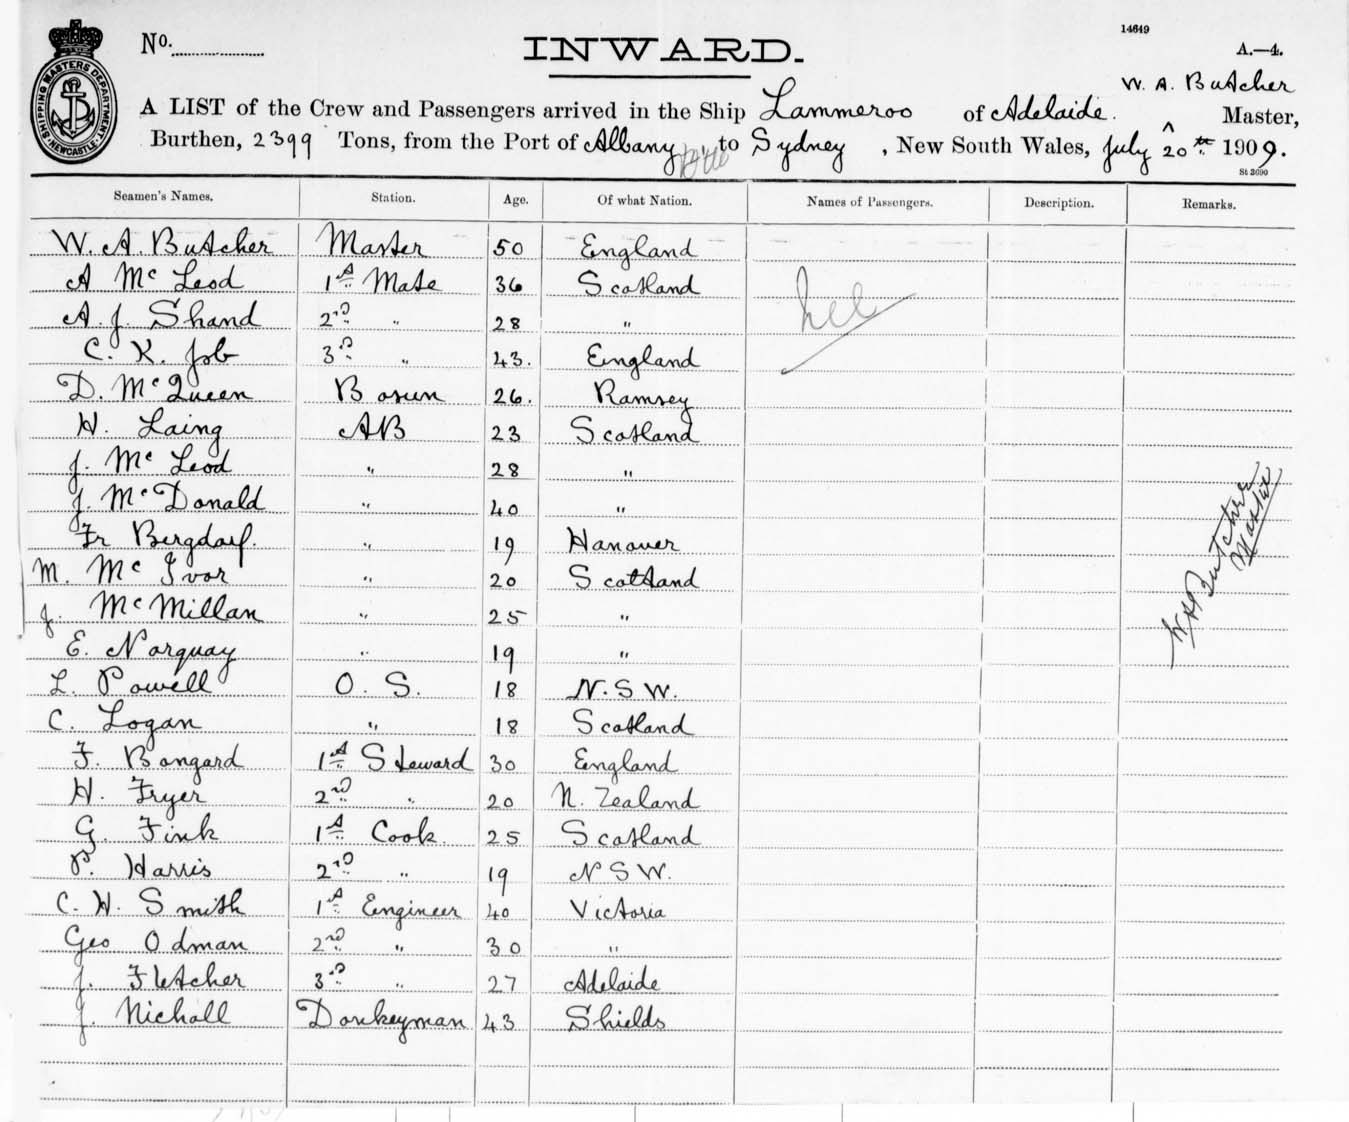 14649
No.
INWARD.
A.—4.
W. A. Butcher
A LIST of the Crew and Passengers arrived in the Ship Lammeroo of Adelaide. ^ Master,
Burthen, 2399 Tons, from the Port of Albany to Sydney, New South Wales, July 20th 1909.
St 3690
SHIPPING MASTERS DEPARTMENT NEWCASTLE
Seamen's Names. Station. Age. Of what Nation. Names of Passengers. Description. Remarks.
W. A. Butcher Master 50 England
A Mc Leod 1st Mate 36 Scotland
A. J. Shand 2nd " 28 "
C. K. Job 3rd " 43. England
D. McQueen Bosun 26. Ramsey
H. Laing AB 23 Scotland
J. Mc Leod " 28 "
J. McDonald " 40 "
Fr Bergdorf. " 19 Hanover
M. Mc Ivor " 20 Scotland
J. McMillan " 25 "
E. Norquay " 19 "
L. Powell O. S. 18 N.S.W.
C. Logan " 18 Scotland
F. Bongard 1st Steward 30 England
H. Fryer 2nd " 20 N. Zealand
G. Fink 1st Cook. 25 Scotland
P. Harris 2nd " 19 N S W.
C. H. Smith 1st Engineer 40 Victoria
Geo Odman 2nd " 30 "
J. Fletcher 3rd " 27 Adelaide
J. Nicholl Donkeyman 43 Shields
W A Butcher
Master